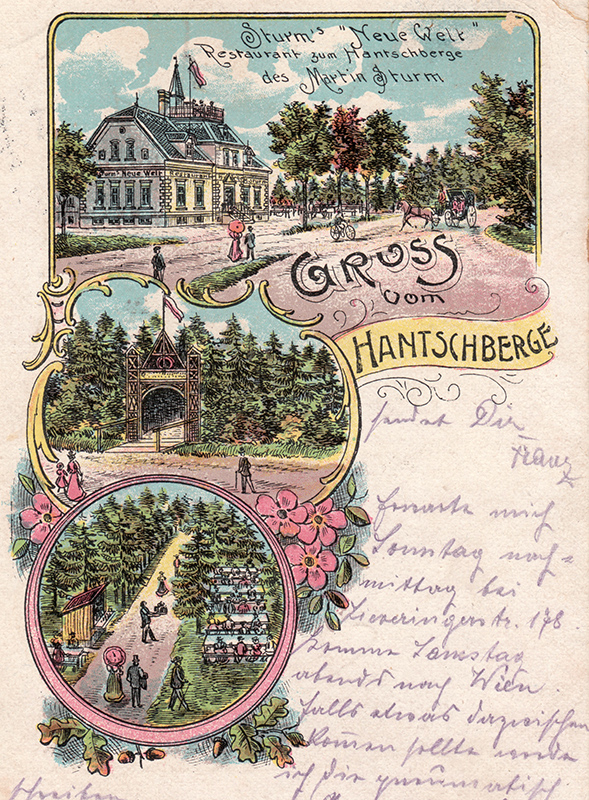 Sturm's "Neue Welt"
Restaurant zum Hantschberge
des Martin Sturm
Neue Welt
GRUSS
vom
HANTSCHBERGE
sendet Dir
Franz
Erwarte mich
Sonntag nach=
mittag bei
Sieveringerstr. 178
komme Samstag
abends nach Wien.
Falls etwas dazwischen
kommen sollte werde
ich Dir pneumatisch
schreiben